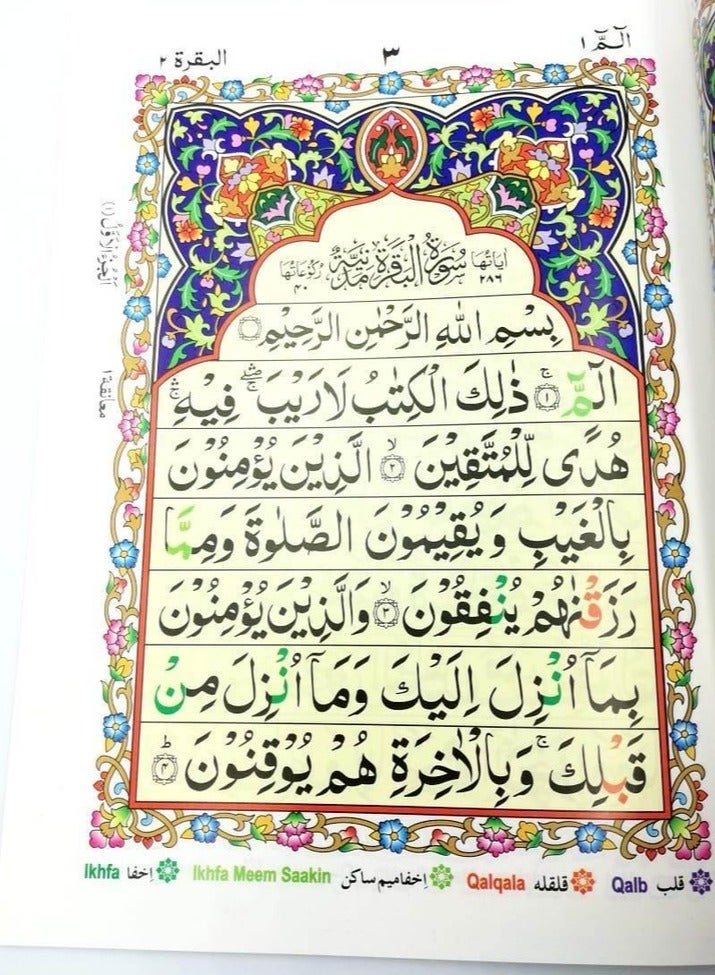 الٓمّٓ ١
٣
البقرة ٢
اٰیَاتُهَا ٢٨٦ سُوْرَةُ الْبَقَرَةِ مَدَنِیَّةٌ رُكُوْعَاتُهَا ٤٠
بِسْمِ اللّٰهِ الرَّحْمٰنِ الرَّحِیْمِ
الٓمّٓ ۚ ﴿١﴾ ذٰلِكَ الْكِتٰبُ لَا رَیْبَ ۛۖ ۚ فِیْهِ ۛۚ
هُدًی لِّلْمُتَّقِیْنَ ۙ ﴿٢﴾ الَّذِیْنَ یُؤْمِنُوْنَ
بِالْغَیْبِ وَ یُقِیْمُوْنَ الصَّلٰوةَ وَمِمَّا
رَزَقْنٰهُمْ یُنْفِقُوْنَ ۙ ﴿٣﴾ وَالَّذِیْنَ یُؤْمِنُوْنَ
بِمَاۤ اُنْزِلَ اِلَیْكَ وَمَاۤ اُنْزِلَ مِنْ
قَبْلِكَ ۚ وَبِالْاٰخِرَةِ هُمْ یُوْقِنُوْنَ ؕ ﴿٤﴾
الْجُزْءُ الْاَوَّلُ (١)
معانقة ١
قلب Qalb قلقله Qalqala اِخفا میم ساکن Ikhfa Meem Saakin اِخفا Ikhfa